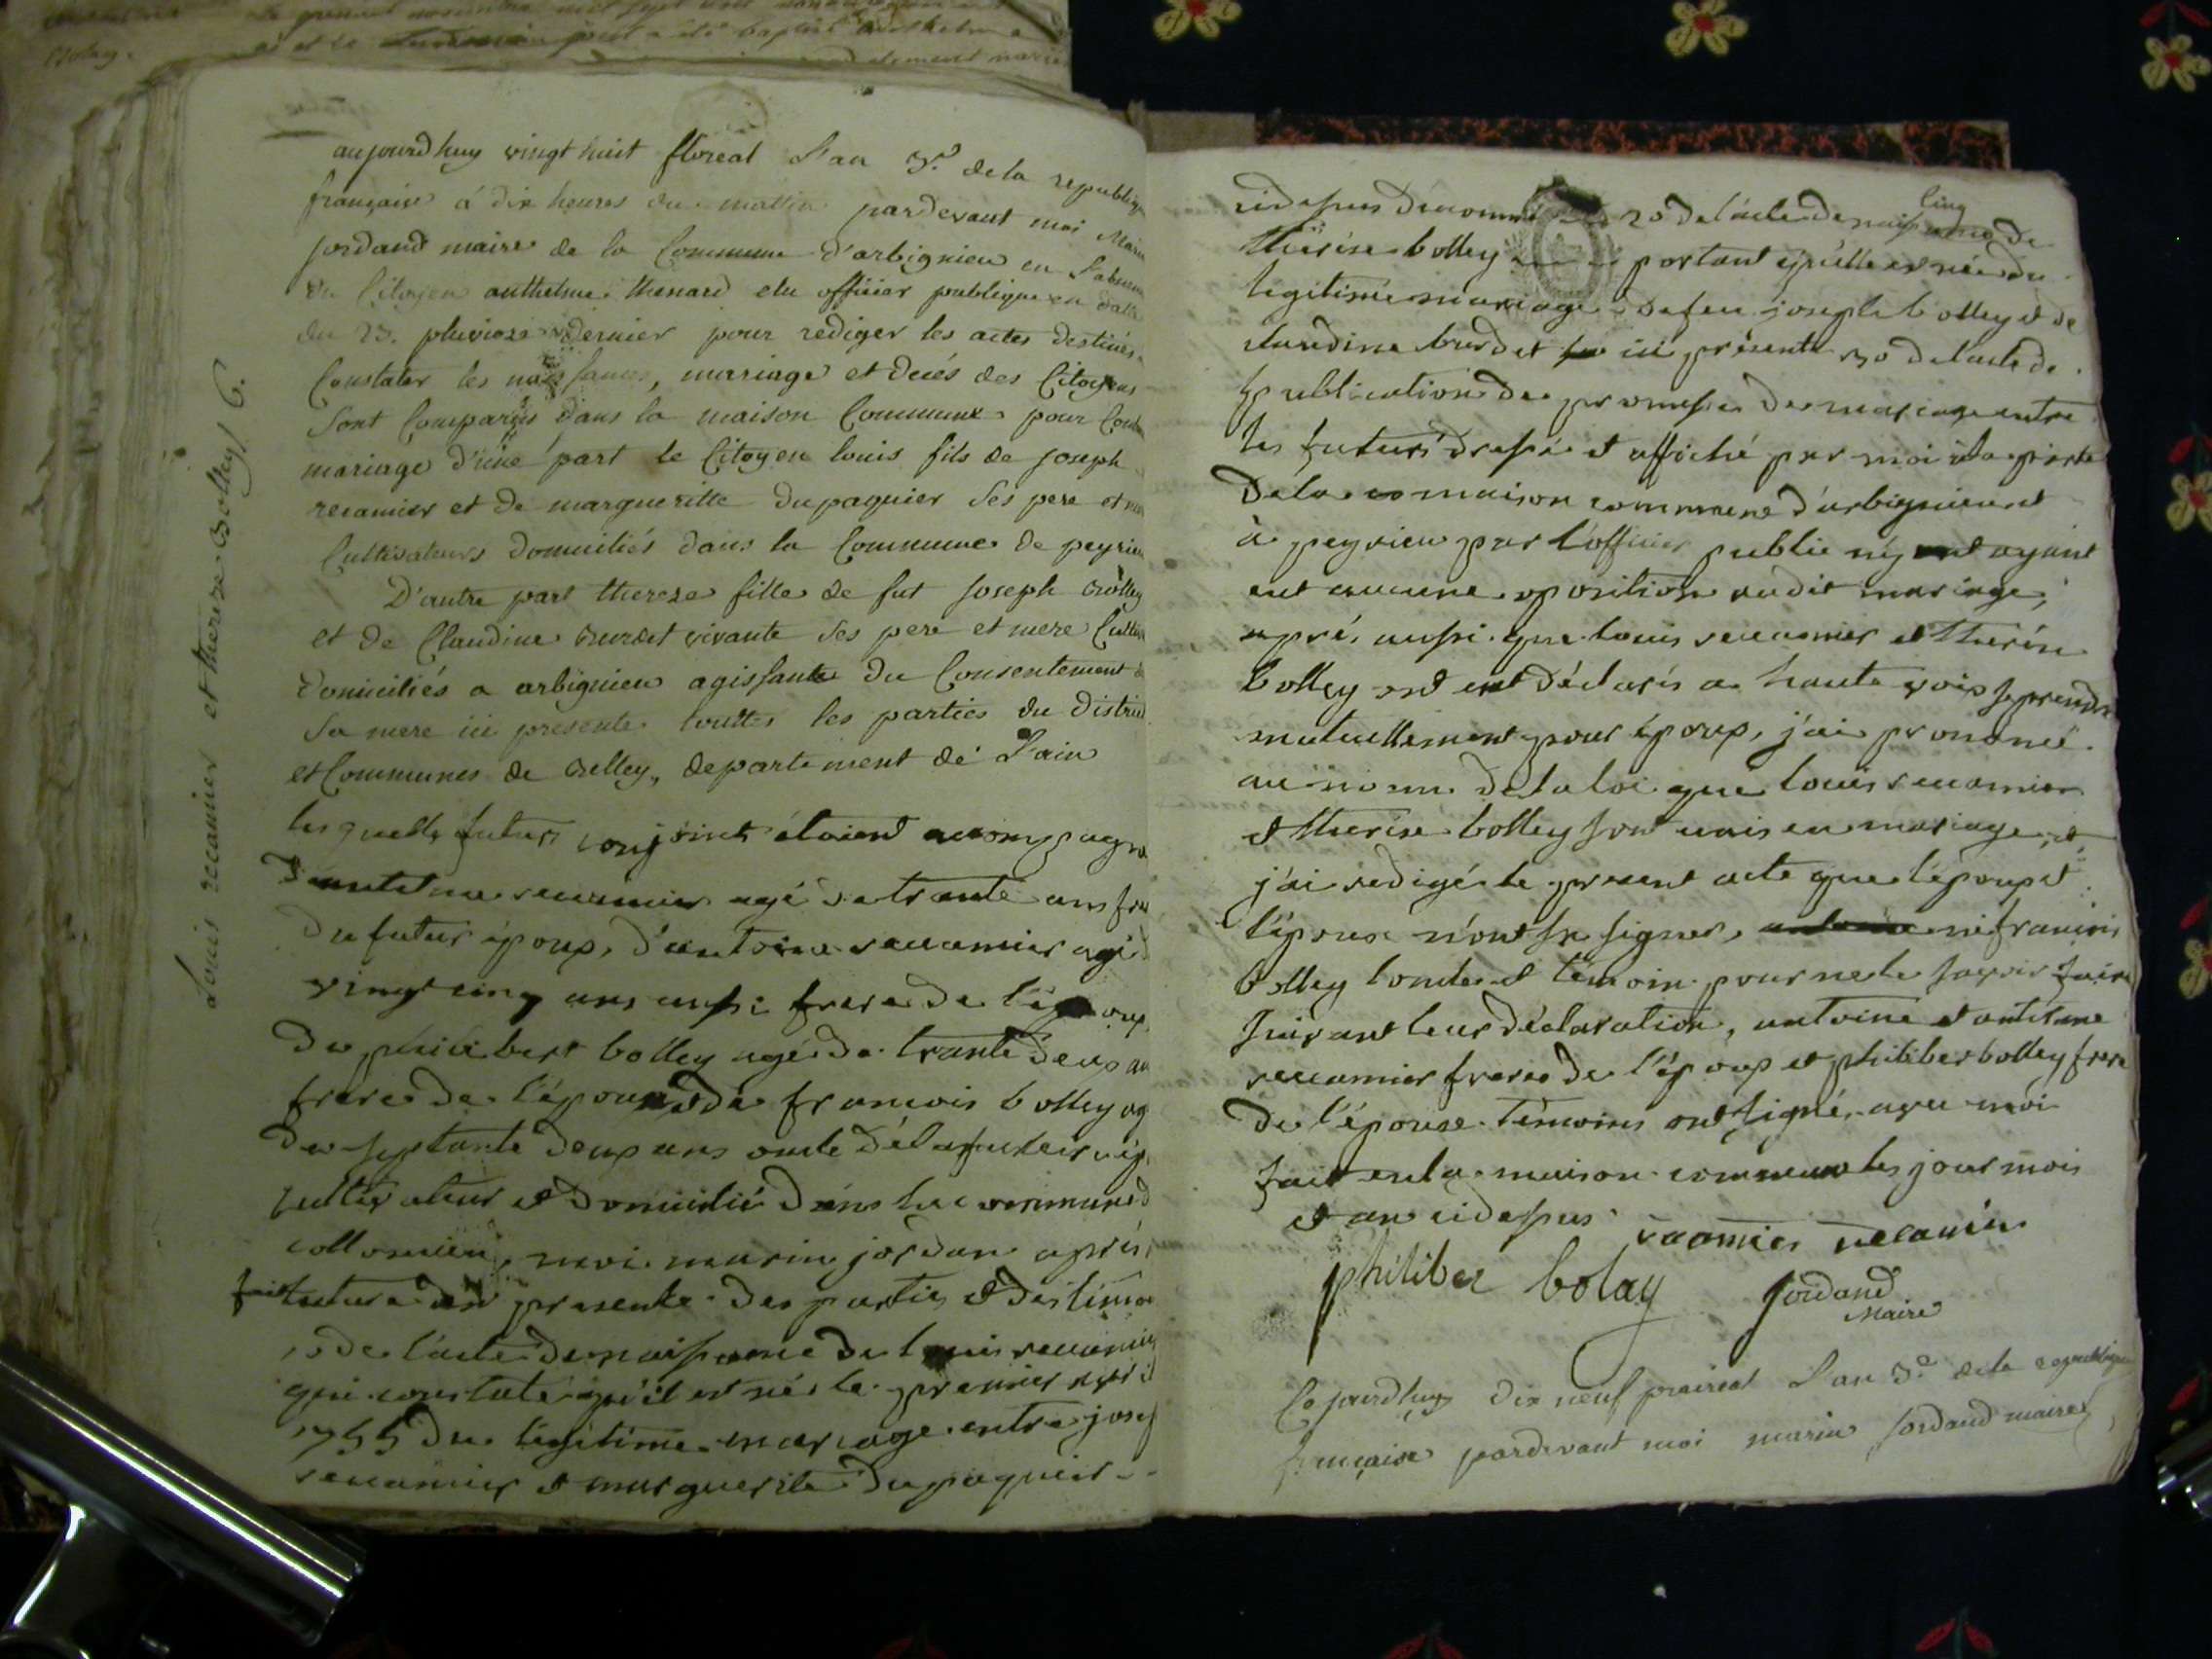 aujourdhuy vingt huit floreal L'an 3.e de la republiq
française à dix heures du mattin pardevant moi Marin
jordand maire de la Commune d'arbignieu en l'absen
du Citoyen anthelme thenard elu officier publique en datte
du 23. pluviose dernier pour rediger les actes destinés
Constater les naissances, mariage et decés des Citoyens
Sont Comparus dans la maison Commune pour Cont
mariage d'une part le Citoyen louis fils de joseph
recamier et de margueritte dupaquier Ses pere et m
Cultivateurs domiciliés dans la Commune de peyrieu
D'autre part thereze fille de fut Joseph Bolley
et de Claudine Burdet vivante Ses pere et mere Cultiv
domiciliés a arbignieu agissante du Consentement d
Sa mere ici presente touttes les parties du district
et Communes de Belley, departement de L'ain
les quells futurs conjoints étoient accompagné
d'antelme recamier agé de trante ans fre
du futur époux, d'antoine recamier agé d
vingt cinq ans aussi frere de l'époux
de philibert bolley agé de trante deux an
frere de l'épouse et de francois bolley ag
de septante deux ans oncle de la future ép
cultivateur et domicilié dans la commune d
collomieu, moi marin jordan aprés
fait lecture en presente des parties et des timo
1o de l'acte de naissance de louis recamier
qui constate qu'il est né le premier avril
1755 du légitime mariage entre josef
recamier et marguerite dupaquier
Louis recamier et thereze Bolley 6.
cidessus dénommé 2o de l'acte de naissance de
thérése bolley portant qu'elle est née du
legitime mariage de feu joseph bolley et de
claudine burdet ici présente 3o de l'acte de
publication de promesse de mariage entre
les futurs dressé et affiché par moi à la porte
de la maison commune d'arbignieu et
à peyrieu par l'officier public n'y ayant
eut aucune oposition audit mariage,
aprés aussi que louis recamier et thérése
bolley ont déclarés a haute voix se prendre
mutuellement pour époux, j'ai prononcé
au nom de la loi que louis recamier
et thérése bolley sont unis en mariage, et
j'ai redigé le present acte que l'époux et
l'épouse n'ont su signer, ni francois
bolley l'oncle et témoin pour ne le savoir faire
suivant leur déclaration, antoine et antelme
recamier freres de l'époux et philiber bolley frere
de l'épouse témoins ont signé, avec moi
fait en la maison commune les jour mois
et an cidessus
philiber bolay
jordand
Maire
Cejourdhuy dix neuf prairial L'an 3.e de la republique
française pardevant moi marin jordand maire